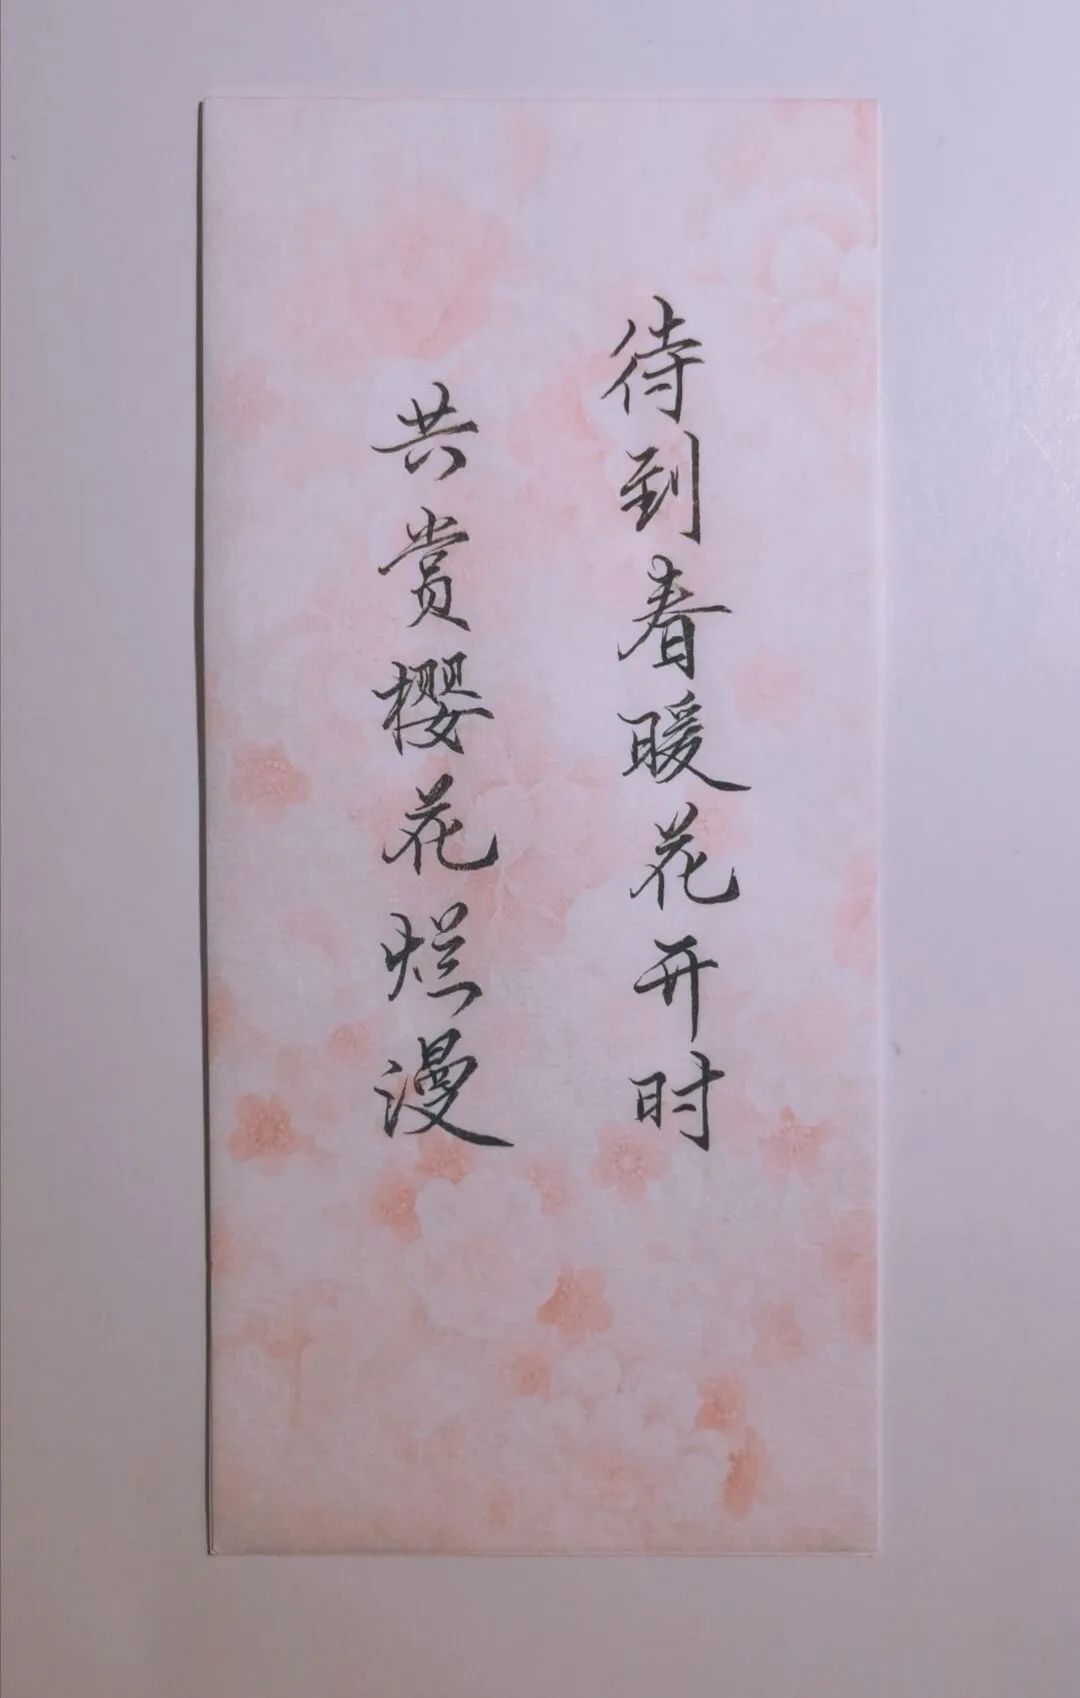 待到春暖花开时
共赏樱花烂漫